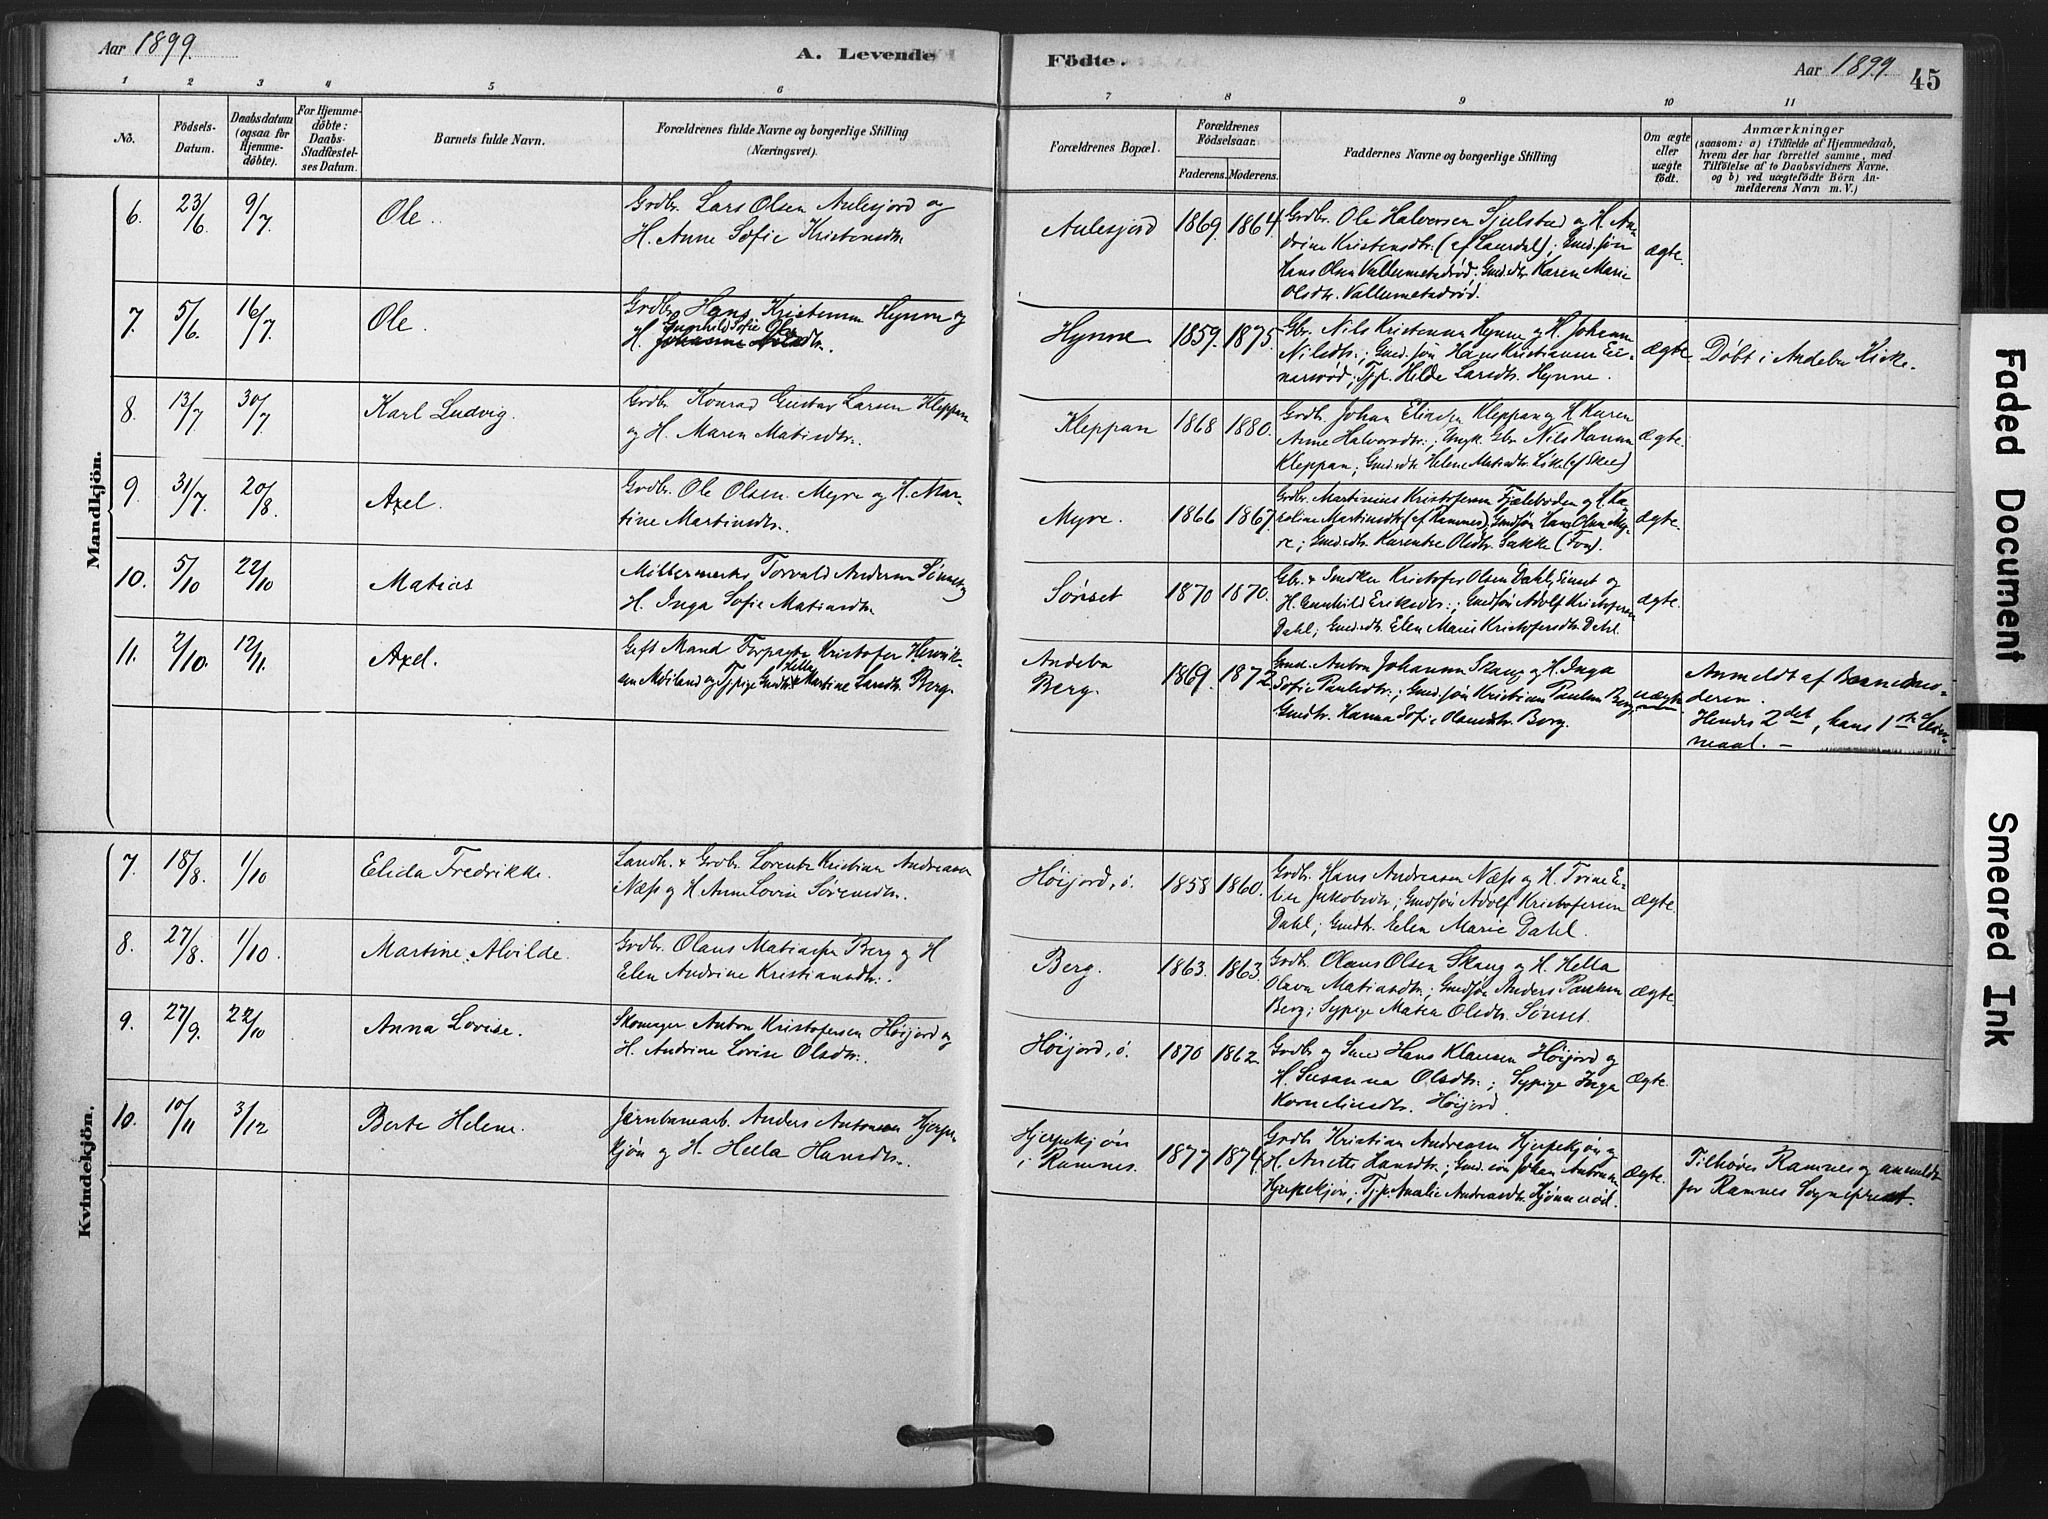 Aar 1899.
A. Levende Födte.
Aar 1899.
45
1 2 3 4 5 6 7 8 9 10 11
No.
Födsels-Datum.
Daabsdatum (ogsaa for Hjemmedöbte).
For Hjemmedöbte: Daabs-Stadfæstelses Datum.
Barnets fulde Navn.
Forældrenes fulde Navne og borgerlige Stilling (Næringsvei).
Forældrenes Bopæl.
Forældrenes Födselsaar.
Faderens. Moderens.
Faddernes Navne og borgerlige Stilling
Om ægte eller uægte födt.
Anmærkninger
(saasom: a) i Tilfælde af Hjemmedaab, hvem der har forrettet samme, med Tilföielse af to Daabsvidners Navne, og b) ved uægtefödte Börn Anmelderens Navn m. V.)
Mandkjön.
6. 23/6 9/7 Ole.
Grdbr. Lars Olsen Aulesjord og
H. Anne Sofie Kristensdtr.
Aulesjord 1869. 1864.
Grdbr. Ole Halvorsen Gjelstad og H. An-
drine Kristensdtr. (af Laurdal); Gmd.søn
Hans Olsen Vallumetadrød; Gmd.dtr. Karen Marie
Olsdtr. Vallumetadrød.
ægte.
7. 5/6 16/7 Ole.
Grdbr. Hans Kristensen Hynne og
H. Gunhild Sofie Olsdtr.
Hynne 1859. 1875.
Gbr. Nils Kristensen Hynne og H. Johanne
Nilsdtr.; Gmd.søn Hans Kristiansen Ei-
narsrød; Tjp. Hilde Larsdtr. Hynne.
ægte.
Døbt i Andebu Kirke.
8. 13/7 30/7 Karl Ludvig.
Grdbr. Konrad Gustav Larsen Kleppan
og H. Maren Matisdtr.
Kleppan 1868 1880.
Grdb. Johan Eliasen Kleppan og H. Karen
Anne Halvorsdtr.; Ungk. Gbr. Nils Hansen
Kleppan; Gmd.dtr. Helene Matisdtr. Like (af Skee)
ægte.
9. 31/7. 20/8. Axel.
Grdbr. Ole Olsen Myre og H. Mar-
tine Martinsdtr.
Myre. 1866 1867.
Grdbr. Martinius Kristofersen Fjæleboden og H. Ka-
roline Martinsdtr. (af Ramnes); Gmdsøn Hans Olsen My-
re; Gmd.dtr. Karentse Olsdtr. Bakke (Fon).
ægte.
10. 5/10 22/10 Matias
Møllermester Torvald Andersen Sønset og
H. Inga Sofie Matiasdtr.
Sønset 1870 1870.
Gbr. & Snedker Kristofer Olsen Dahl, Sønset og
H. Gunhild Eriksdtr.; Gmdsøn Adolf Kristofersen
Dahl; Gmd.dtr. Elen Marie Kristofersdtr. Dahl.
ægte.
11. 2/10. 12/11. Axel.
Gift Mand Forpagter Kristofer Henrik-
sen Møiland og Tjpige Gmdtr. Hella Martine Larsdtr. Berg.
Andebu
Berg. 1869. 1872
Gmd. Anton Johannsen Skaug og H. Inga
Sofie Paulsdtr.; Gmd.søn Kristian Paulsen Berg;
Gmdtr. Hanna Sofie Olsensdtr. Berg.
uægte
Anmeldt af Barnemo-
deren.
Hendes 2det, hans 1ste Leier-
maal. —
Kvindekjön.
7. 18/8. 1/10 Elida Fredrikke.
Landh. & Grdbr. Lorents Kristian Andreasen
Næss og H. Anne Lovise Sørensdtr.
Høijord, ø. 1858 1860.
Grdb. Hans Andreasen Næss og H. Trine E-
lise Jakobsdtr.; Gmdsøn Adolf Kristofersen
Dahl; Gmdtr. Elen Marie Dahl.
ægte.
8. 27/8. 1/10. Martine Alvilde.
Grdbr. Olaus Matiassen Berg og H
Elen Andrine Kristiansdtr.
Berg. 1863. 1863.
Grdb. Olaus Olsen Skaug og H. Hella
Olava Matiasdtr.; Gmdsøn Anders Paulsen
Berg; Sypige Matea Olsdtr. Sønset.
ægte.
9. 27/9. 22/10 Anna Lovise.
Skomager Anton Kristofersen Høijord og
H. Andrine Lovise Olsdtr.
Høijord, ø. 1870 1862.
Grdbr. og Smed Hans Klausen Høijord og
H. Susanna Olsdtr.; Sypige Inga
Korneliusdtr. Høijord.
Ægte.
10. 10/11 3/12 Berte Helene.
Jernbanearb. Anders Antonsen Hjerpe-
kjøn og H. Hella Hansdtr.
Hjerpekjøn
i Ramnes. 1877 1874.
Grdb. Kristian Andreasen Hjerpekjøn og
H. Anette Hansdtr.; Gmd.søn Johan Antonsen
Hjerpekjøn; Tjp. Amalie Andreasdtr. Kjønnerød.
Ægte.
Tilhører Ramnes og anmeldt
for Ramnes Sogneprest.
Faded Document
Smeared Ink